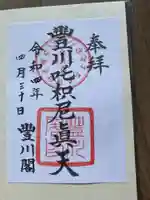 奉拝
豊川吒枳尼眞天
令和四年
四月三十日
豐川閣